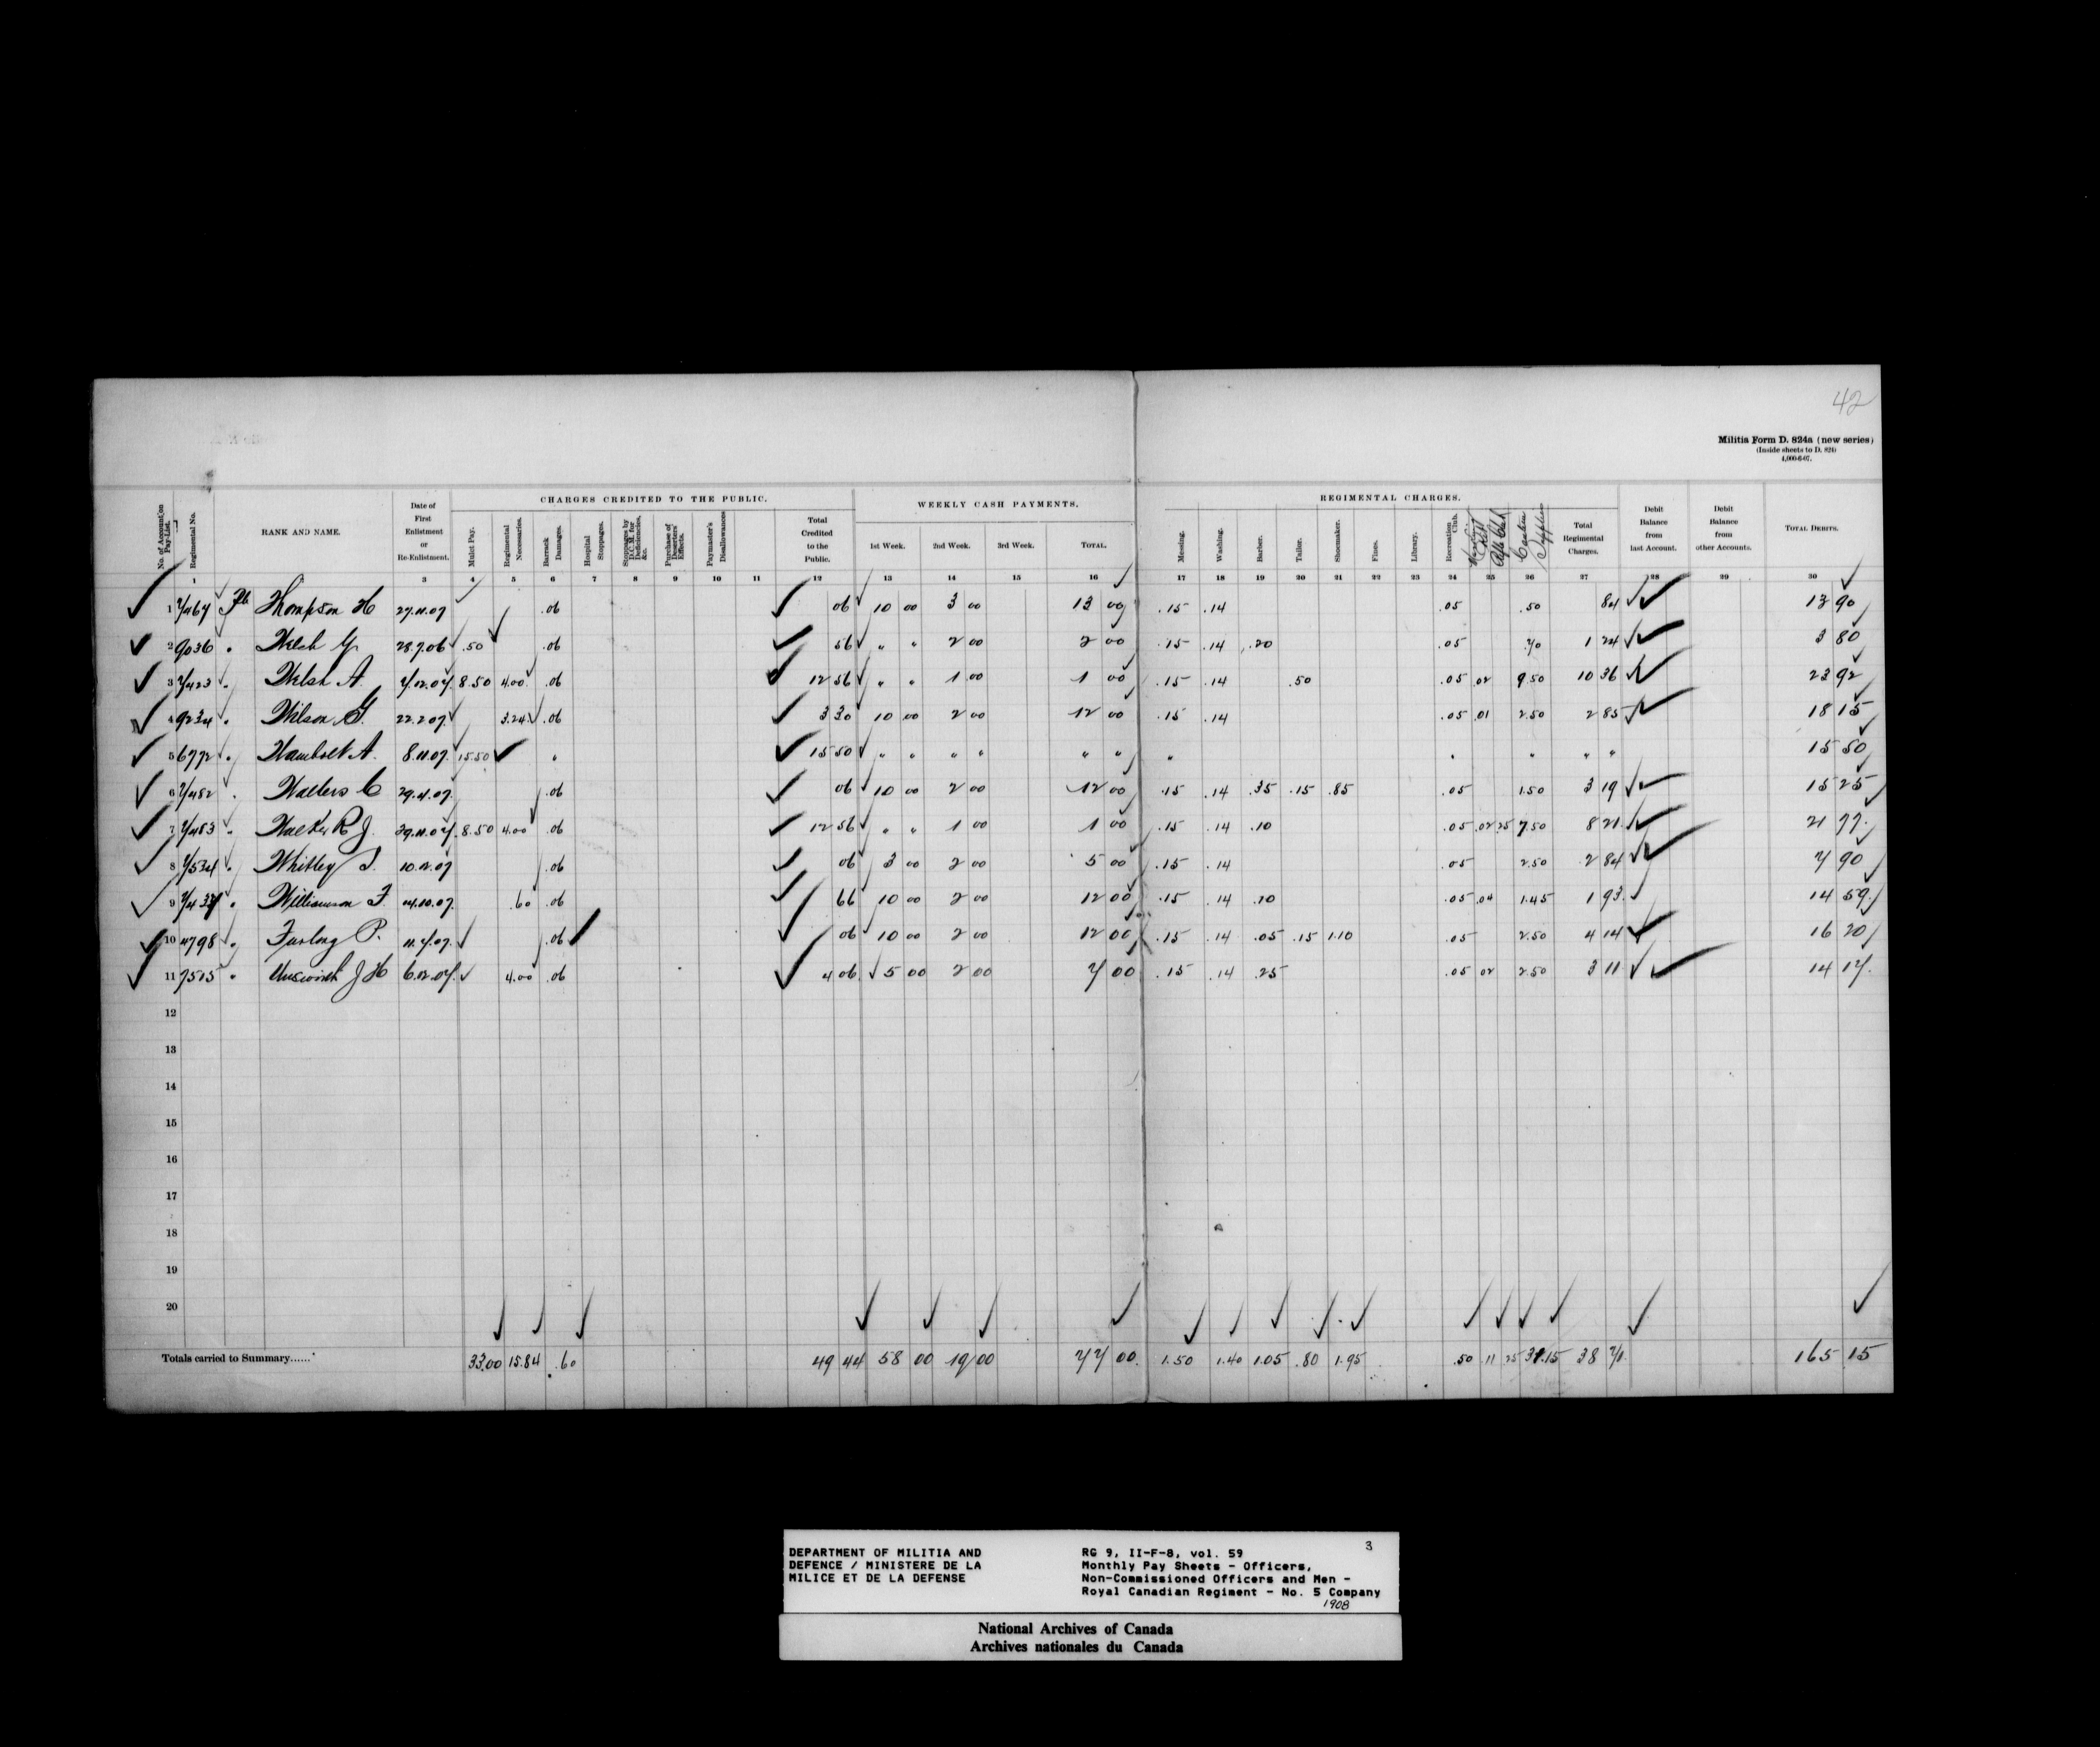 42
Militia Form D. 824a (new series)
(Inside sheets to D. 824)
4,000-6-07.
CHARGES CREDITED TO THE PUBLIC. WEEKLY CASH PAYMENTS. REGIMENTAL CHARGES.
No. of Account on Pay-List. Regimental No. RANK AND NAME. Date of First Enlistment or Re-Enlistment. Mulct Pay. Regimental Necessaries. Barrack Damages. Hospital Stoppages. Stoppages by D.C.M. for Deficiencies, &c. Purchase of Deserters' Effects. Paymaster's Disallowances Total Credited to the Public. 1st Week. 2nd Week. 3rd Week. TOTAL. Messing. Washing. Barber. Tailor. Shoemaker. Fines. Library. Recreation Club. Canteen Supplies Total Regimental Charges. Debit Balance from last Account. Debit Balance from other Accounts. TOTAL DEBITS.
1 3 4 5 6 7 8 9 10 11 12 13 14 15 16 17 18 19 20 21 22 23 24 25 26 27 28 29 30
1 7467 Pte Thompson H 27.11.07 .06 06 10 00 3 00 13 00 .15 .14 .05 .50 84 13 90
2 9036 " Welch G. 28.7.06 .50 .06 56 " " 2 00 2 00 .15 .14 .20 .05 .70 1 24 3 80
3 7423 " Welsh A. 7.02.07. 8.50 4.00 .06 12 56 " " 1 00 1 00 .15 .14 .50 .05 .02 9.50 10 36 23 92
4 9234 " Wilson G. 22.2.07. 3.24 .06 3 30 10 00 2 00 12 00 .15 .14 .05 .01 2.50 2 85 18 15
5 6772 " Wambolt A. 8.11.07. 15.50 " 15 50 " " " " " " " " " " " 15 50
6 7482 " Walters C 29.11.07. .06 06 10 00 2 00 12 00 .15 .14 .35 .15 .85 .05 1.50 3 19 15 25
7 7483 " Walker R J. 29.11.07. 8.50 4.00 .06 12 56 " " 1 00 1 00 .15 .14 .10 .05 .02 25 7.50 8 21 21 77
8 7534 " Whitley S. 10.12.07 .06 06 3 00 2 00 5 00 .15 .14 .05 2.50 2 84 7 90
9 " Williamson F. 14.10.07. .60 .06 66 10 00 2 00 12 00 .15 14 .10 .05 .04 1.45 1 93 14 59
10 4798 " Furlong P. 11.7.07. .06 06 10 00 2 00 12 00 .15 .14 .05 .15 1.10 .05 2.50 4 14 16 20
11 7515 " Unsworth J H 6.12.07. 4.00 .06 4 06 5 00 2 00 7 00 .15 .14 .25 .05 02 2.50 3 11 14 17
12
13
14
15
16
17
18
19
20
Totals carried to Summary...... 33.00 15.84 .60 49 44 58 00 19 00 77 00 1.50 1.40 1.05 .80 1.95 .50 .11 25 31.15 38 71 165 15
DEPARTMENT OF MILITIA AND
DEFENCE / MINISTERE DE LA
MILICE ET DE LA DEFENSE
3
RG 9, II-F-8, vol. 59
Monthly Pay Sheets - Officers,
Non-Commissioned Officers and Men -
Royal Canadian Regiment - No. 5 Company
1908
National Archives of Canada
Archives nationales du Canada